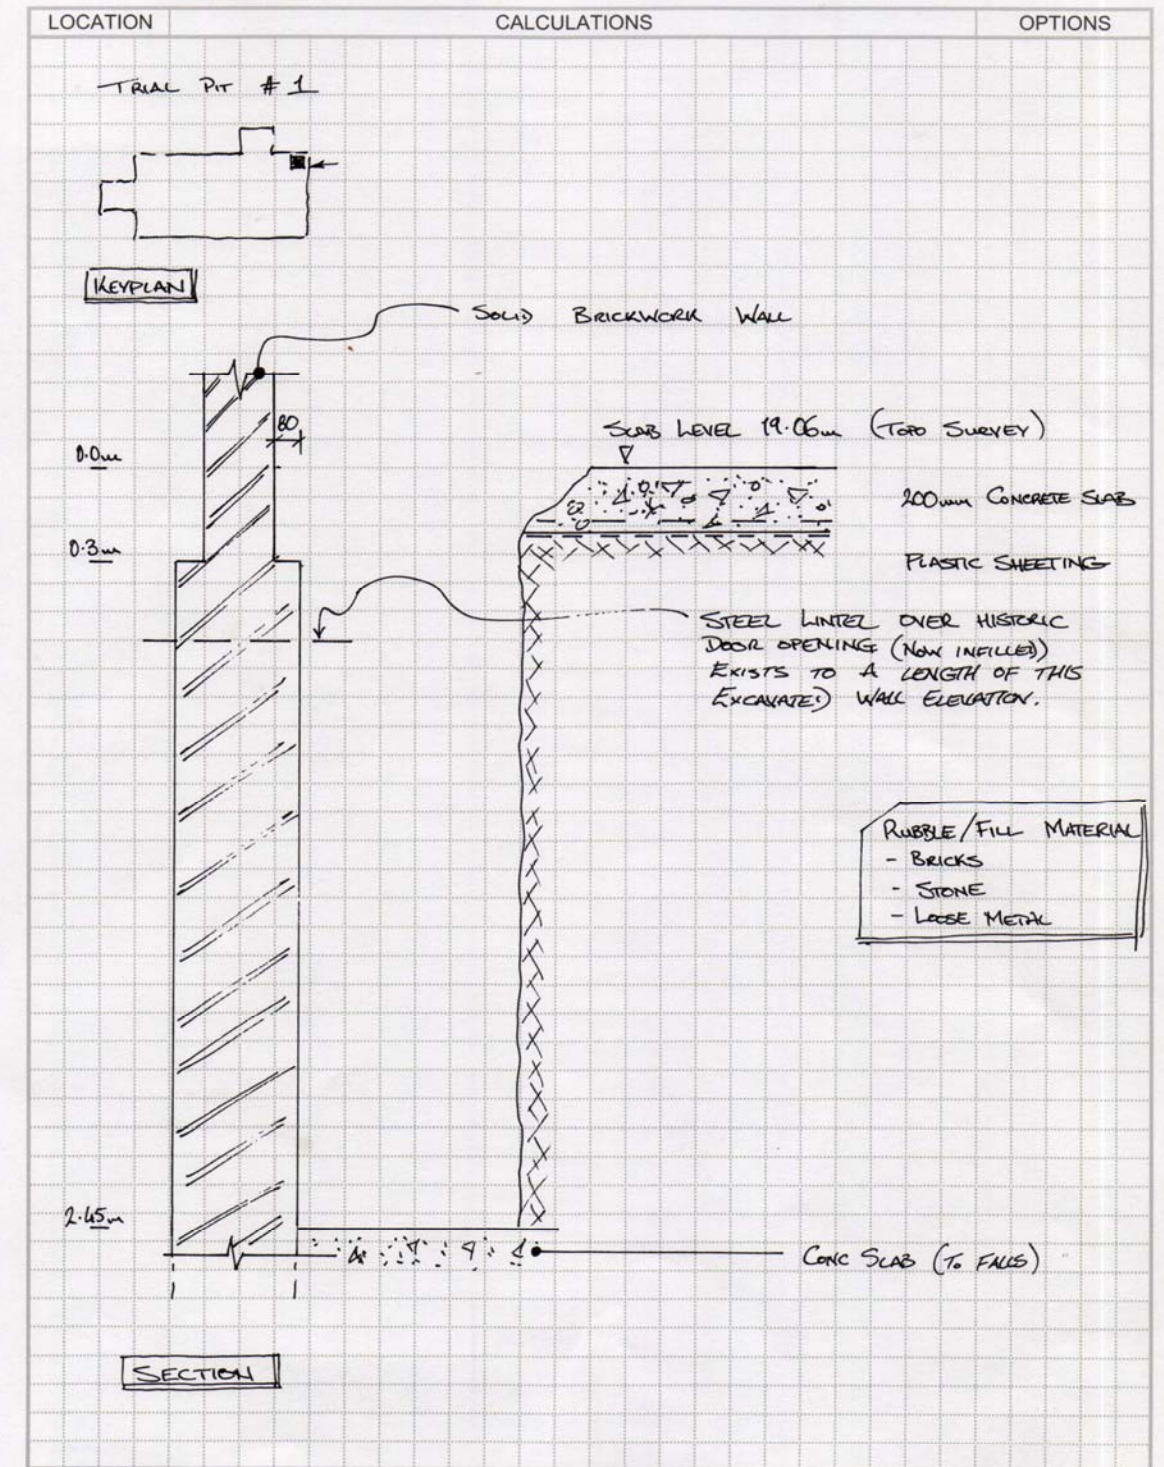 LOCATION CALCULATIONS OPTIONS
TRIAL PIT # 1
KEYPLAN
SOLID BRICKWORK WALL
80
0.0m
SLAB LEVEL 19.06m (TOPO SURVEY)
200mm CONCRETE SLAB
0.3m
PLASTIC SHEETING
STEEL LINTEL OVER HISTORIC
DOOR OPENING (NOW INFILLED)
EXISTS TO A LENGTH OF THIS
EXCAVATED WALL ELEVATION.
RUBBLE/FILL MATERIAL
- BRICKS
- STONE
- LOOSE METAL
2.45m
CONC SLAB (TO FALLS)
SECTION